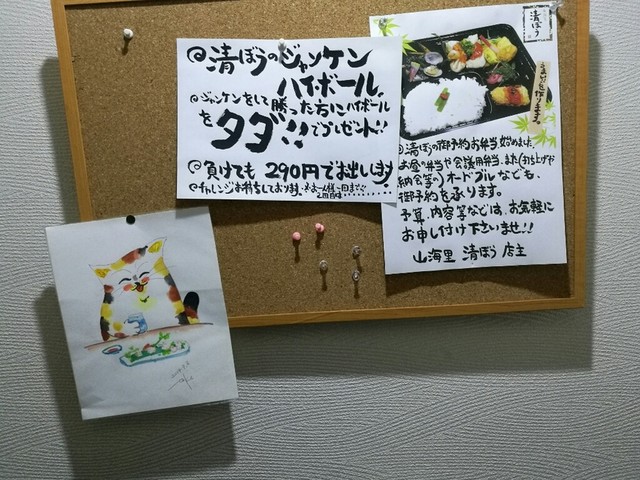 清ぼうのジャンケン
ハイボール
ジャンケンをして勝った方にハイボール
をタダ!!でプレゼント!!
負けても290円で出します
チャレンジお待ちしております。
清ぼう
清ぼうの御予約お弁当始めました。
お昼の弁当や会議用弁当、また(お打ち上げ
納会等の)オードブルなども、
御予約を承ります。
予算、内容等などは、お気軽に
お申し付け下さいませ!!
山海里 清ぼう 店主